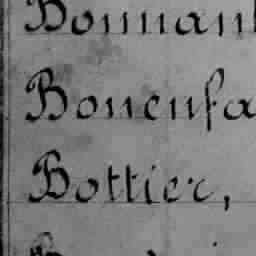 Bonnan
Bonenfa
Bottier,